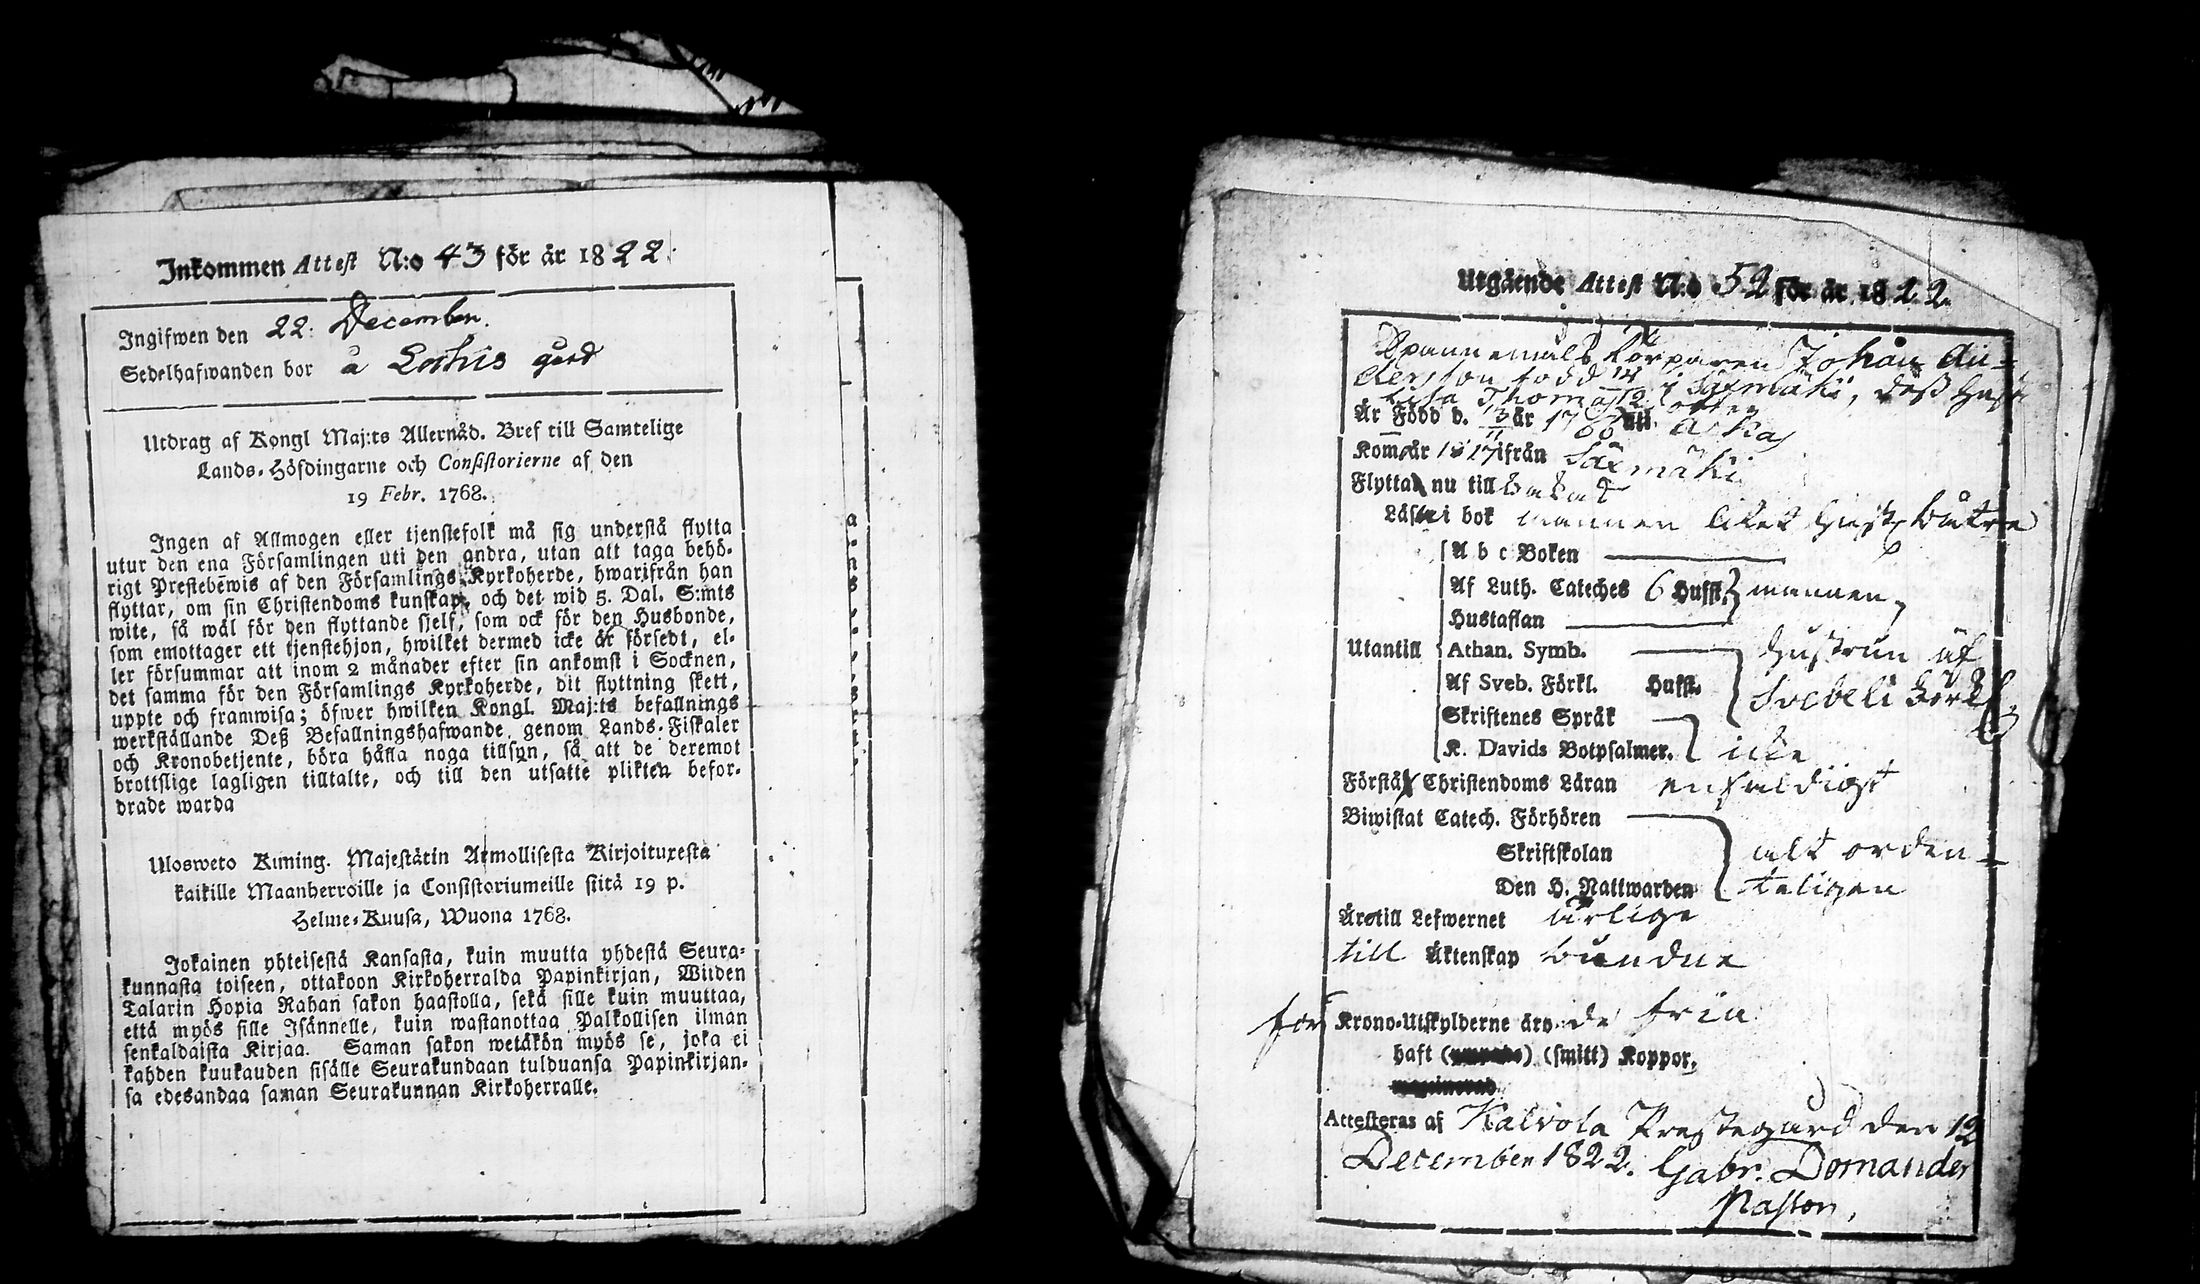 Inkommen Attest N:o 43 för år 1822.
Ingifwen den 22: December.
Sedelhafwanden bor å Lothis gård
Utdrag af Kongl Maj:ts Allernåd. Bref till Samtelige
Lands-Höfdingarne och Consistorierne af den
19 Febr. 1768.
Ingen af Allmogen eller tjenstefolk må sig understå flytta
utur den ena Församlingen uti den andra, utan att taga behö-
rigt Prestebewis af den Församlings Kyrkoherde, hwarifrån han
flyttar, om sin Christendoms kunskap, och det wid 5. Dal. S:mts
wite, så wäl för den flyttande sjelf, som ock för den Husbonde,
som emottager ett tjenstehjon, hwilket dermed icke är försedt, el-
ler försummar att inom 2 månader efter sin ankomst i Socknen,
det samma för den Församlings Kyrkoherde, dit flyttning skett,
uppte och framwisa; öfwer hwilken Kongl. Maj:ts befallnings
werkställande Deß Befallningshafwande genom Lands-Fiskaler
och Kronobetjente, böra hålla noga tillsyn, så att de deremot
brottslige lagligen tilltalte, och till den utsatte plikten befor-
drade warda
Ulosweto Kuning. Majestätin Armollisesta Kirjoituxesta
kaikille Maanherroille ja Consistoriumeille siitä 19 p.
Helme-Kuusa, Wuona 1768.
Jokainen yhteisestä Kansasta, kuin muutta yhdestä Seura-
kunnasta toiseen, ottakoon Kirkoherralda Papinkirjan, Wiiden
Talarin Hopia Rahan sakon haastolla, sekä sille kuin muuttaa,
että myös sille Isännelle, kuin wastanottaa Palkollisen ilman
senkaldaista Kirjaa. Saman sakon wetäkön myös se, joka ei
kahden kuukauden sisälle Seurakundaan tulduansa Papinkirjan-
sa edesandaa saman Seurakunnan Kirkoherralle.
Utgående Attest N:o 52 för år 1822.
Spannemåls Torparen Johan An-
dersson född 14/12 i Säxmäki, deß Hust
Lisa Thomasdotter
Är Född d. 13/11 år 1766 uti Askas
Kom år 1817 ifrån Säxmäki
Flytta nu till
Läsa i bok mannen litet Hust. bättre
A b c Boken
Af Luth. Cateches 6 Hufst. mannen,
Hustaflan
Utantill Athan. Symb. Hustrun af
Af Sveb. Förkl. Hufst. Svebeli Förkl.
Skriftenes Språk
K. Davids Botpsalmer. icke
Förstå Christendoms Läran enfaldigt
Biwistat Catech. Förhören
Skriftskolan alt orden-
Den H. Nattwarden teligen
Äro till Lefwernet ärlige
till Äktenskap bundne
för Krono-Utskylderne äro de fria
haft (smitt) Koppor,
Attesteras af Kalvola Prestegård den 12
December 1822. Gabr. Domander
Pastor.